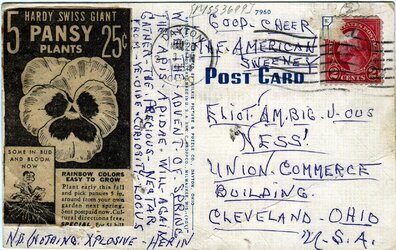 HARDY SWISS GIANT
5 PANSY 25¢
PLANTS
SOME IN BUD
AND BLOOM
NOW
RAINBOW COLORS
EASY TO GROW
Plant early this fall
and pick pansies in
around from your own
garden next spring.
Sent postpaid now. Cul-
tural directions free.
WITH THE ADVENT OF SPRING
THE APIS APIDAE, WILL AGAIN
GATHER THE PRECIOUS NECTAR
FROM
NO (NOTHING XPLOSIVE - HEREIN
7960
GOOD CHEER
THE AMERICAN
SWEENEY
POST CARD
CENTS
ELIOT-AM.BIG.U-OUS
NESS'
UNION-COMMERCE
BUILDING.
CLEVELAND-OHIO
U.S.A.